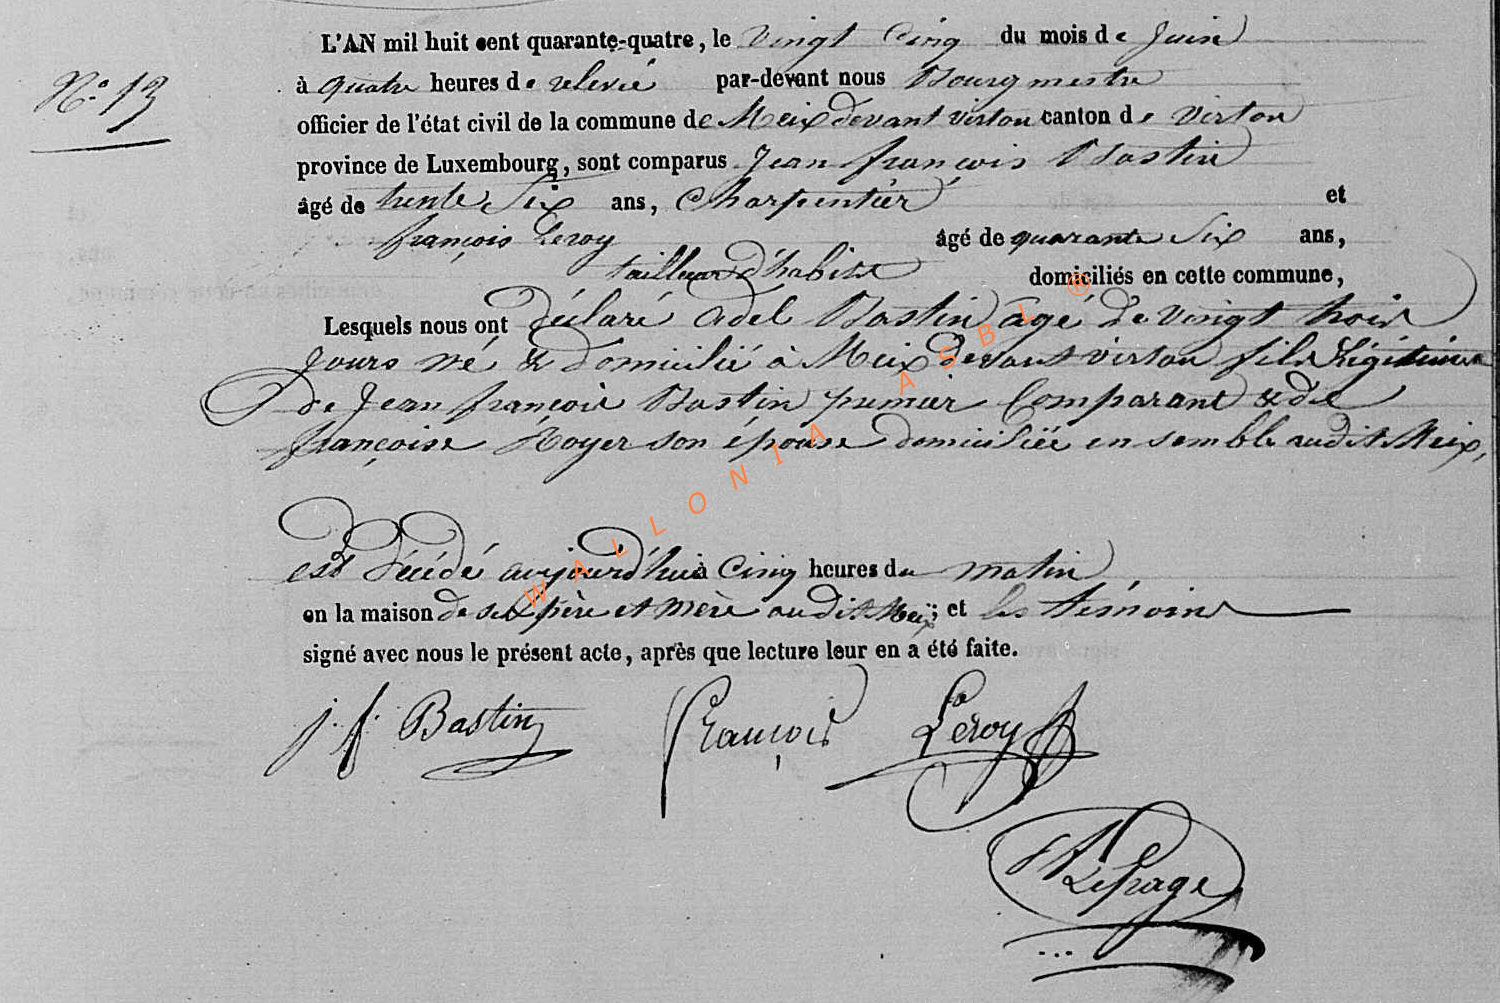 L'AN mil huit cent quarante-quatre, le vingt cinq du mois de juin
N.° 13
à quatre heures de relevée par-devant nous Bourgmestre
officier de l'état civil de la commune de Meix devant virton canton de Virton
province de Luxembourg, sont comparus Jean françois Bastin
âgé de trente Six ans, Charpentier et
françois Leroy âgé de quarante Six ans,
tailleur d'habits domiciliés en cette commune,
Lesquels nous ont déclaré adel Bastin agé de vingt trois
jours né & domicilié à Meix devant virton fils Légitime
de Jean françois Bastin premier Comparant & de
françoise Royer son épouse domiciliée en semble audit Meix,
est décédé aujourd'hui à Cinq heures du matin
en la maison de ses père et mère audit Meix; et les témoins
signé avec nous le présent acte, après que lecture leur en a été faite.
j. f. Bastin françois Leroy
Lepage
WALLONIA ASBL ®